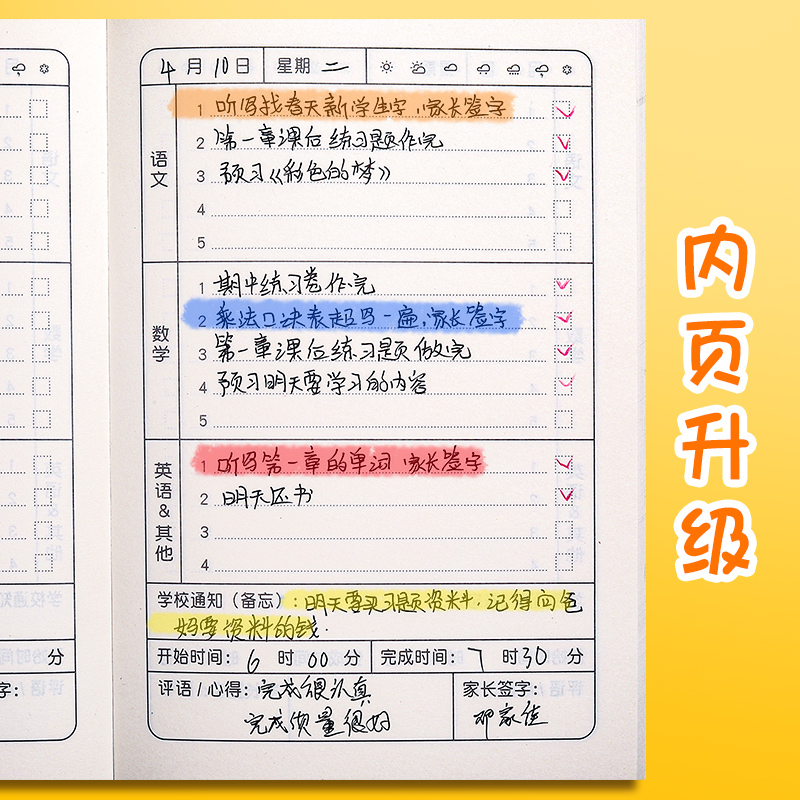 4月10日 星期 二
语文
1 听写找春天新学生字,家长签字
2 第一章课后练习题作完
3 预习《彩色的梦》
4
5
数学
1 期中练习卷作完
2 乘法口决表起写一遍,家长签字
3 第一章课后练习题做完
4 预习明天要学习的内容
5
英语&其他
1 听写第一章的单词,家长签字
2 明天还书
3
4
学校通知(备忘):明天要买习题资料,记得向爸
妈要资料的钱.
开始时间:6时00分 完成时间:7时30分
评语/心得:完成很认真
完成质量很好
家长签字:
邓家佳
分
字:
内页升级